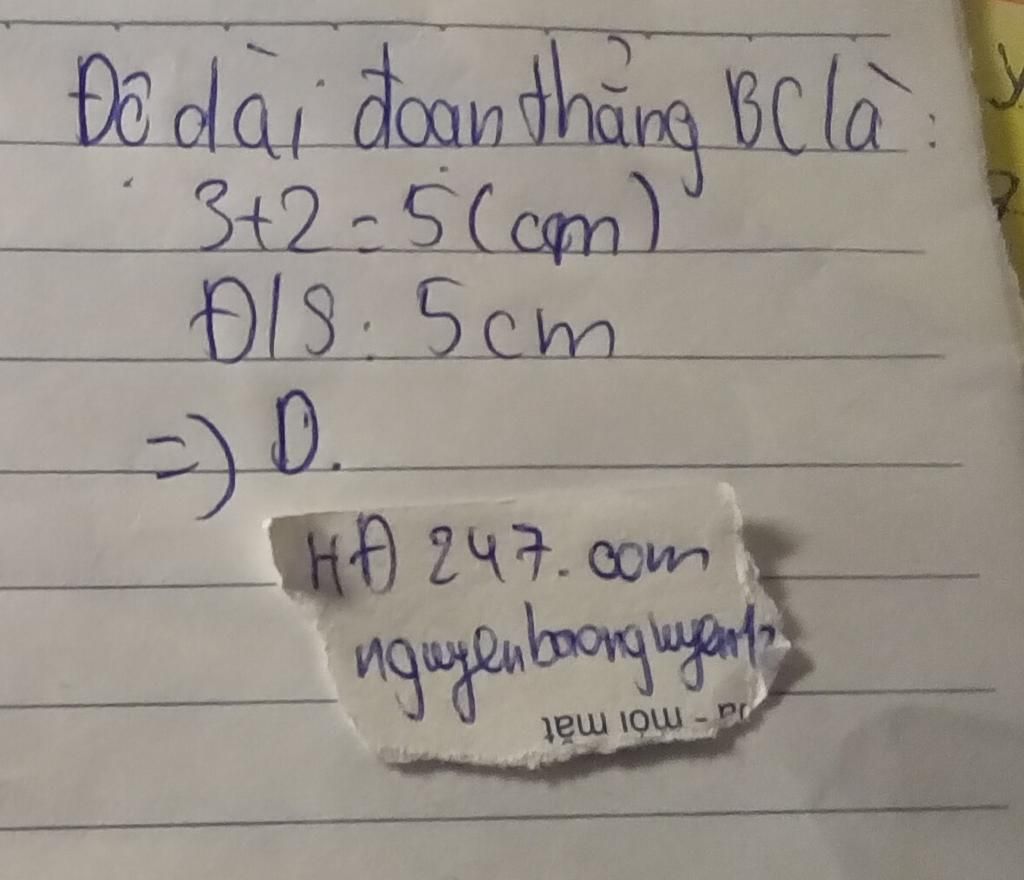 Độ dài đoạn thẳng BC là:
3+2=5(cm)
Đ/S: 5cm
=> D.
HĐ 247.com
nguyenbaonguyen12